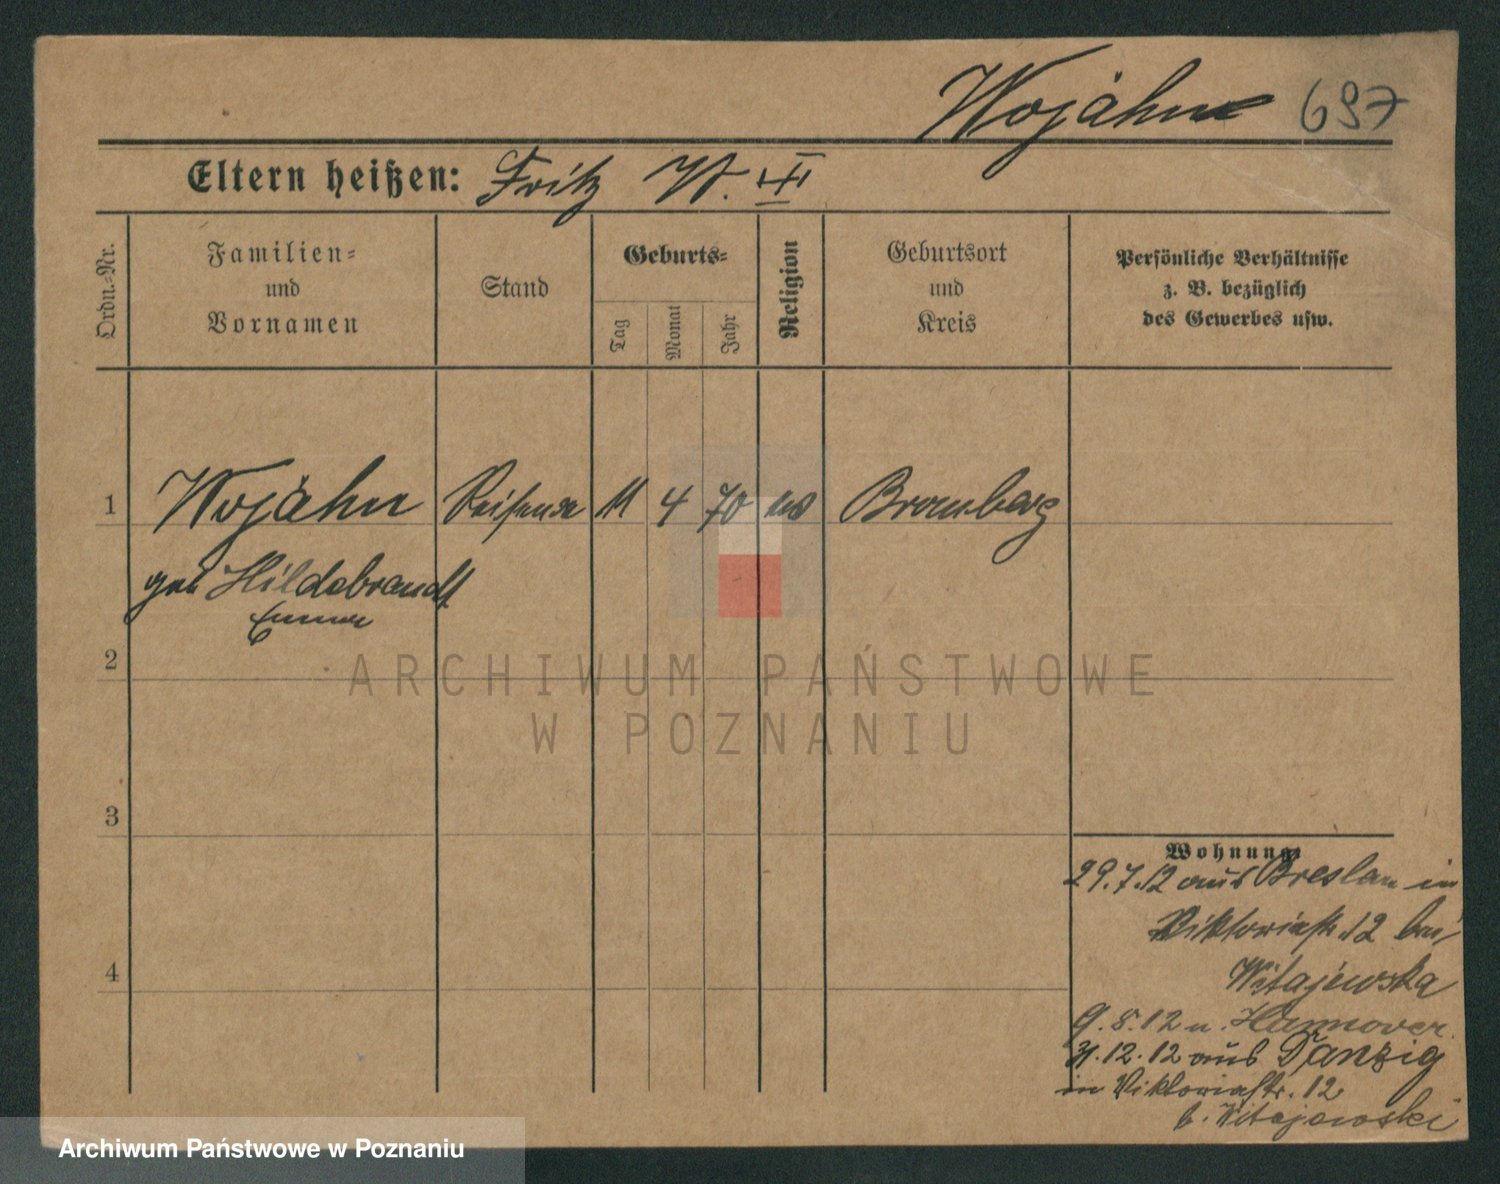 Wojähn 697
Eltern heißen: Fritz W. III
Ordn.-Nr.
Familien-
und
Vornamen
Stand
Geburts-
Tag
Monat
Jahr
Religion
Geburtsort
und
Kreis
Persönliche Verhältnisse
z. B. bezüglich
des Gewerbes usw.
1 Wojähn Reisende 11 4 70 Bromberg
geb Hildebrandt
Emma
2
ARCHIWUM PAŃSTWOWE
W POZNANIU
3
Wohnung
29.7.12 aus Breslau in
Viktoriastr. 12 bei
Witajewska
9.8.12 n. Hannover.
31.12.12 aus Danzig
in Viktoriastr. 12
b. Witajewski
4
Archiwum Państwowe w Poznaniu